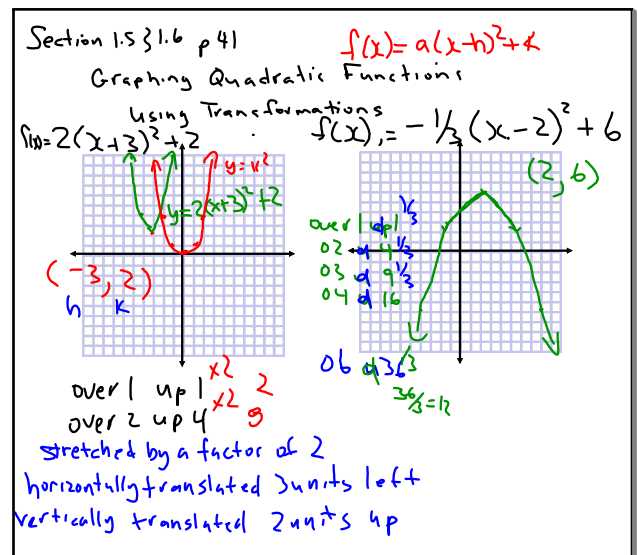 Section 1.5 & 1.6 p 41
f(x) = a(x-h)² + k
Graphing Quadratic Functions
using Transformations
f(x) = 2(x+3)² + 2
f(x) = - 1/3 (x-2)² + 6
y = x²
(2, 6)
y = 2(x+3)² + 2
over 1 d up 1 1/3
02 d 4 1/3
03 d 9 1/3
04 d 16
(-3, 2)
h k
06 d 36 /3
36/3 = 12
over 1 up 1 x2 2
over 2 up 4 x2 8
stretched by a factor of 2
horizontally translated 3 units left
vertically translated 2 units up